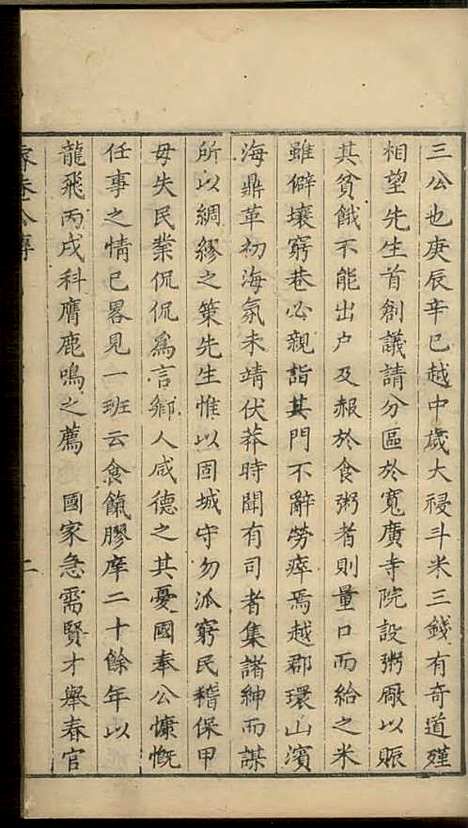 三公也庚辰辛巳越中歲大祲斗米三錢有奇道殣
相望先生首創議請分區於寬廣寺院設粥廠以賑
其貧餓不能出户及赧於食粥者則量口而給之米
雖僻壤窮巷必親詣其門不辭勞瘁焉越郡環山濱
海鼎革初海氛未靖伏莽時聞有司者集諸紳而謀
所以綢繆之策先生惟以固城守勿派窮民稽保甲
毋失民業侃侃爲言鄉人咸德之其憂國奉公慷慨
任事之情已畧見一班云食餼膠庠二十餘年以
龍飛丙戌科膺鹿鳴之薦 國家急需賢才舉春官
二